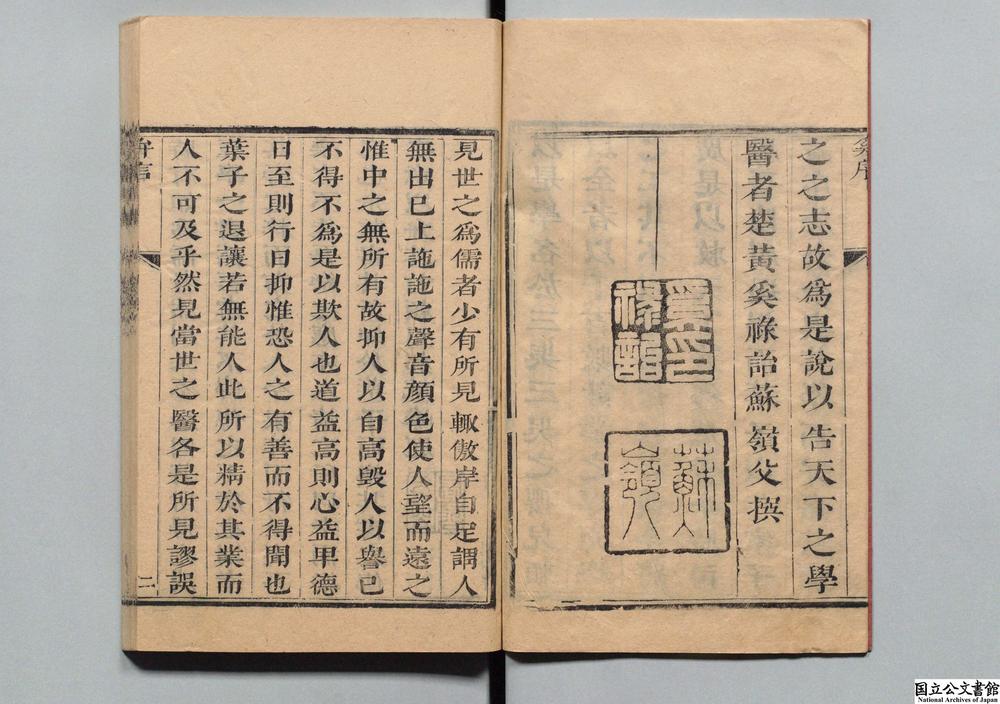 之之志故為是說以告天下之學
醫者楚黃奚祿詒蘇嶺父撰
奚印
祿詒
蘇
嶺人
見世之為儒者少有所見輙傲岸自足謂人
無出已上訑訑之聲音顏色使人望而遠之
惟中之無所有故抑人以自高毀人以譽已
不得不為是以欺人也道益高則心益卑德
日至則行日抑惟恐人之有善而不得聞也
葉子之退讓若無能人此所以精於其業而
人不可及乎然見當世之醫各是所見謬誤
弁言
二
国立公文書館
National Archives of Japan